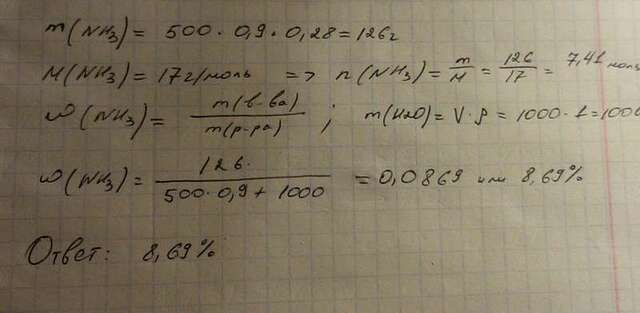 m(NH₃) = 500 · 0,9 · 0,28 = 126г
M(NH₃) = 17г/моль => n(NH₃) = m/M = 126/17 = 7,41 моль
ω(NH₃) = m(в-ва)/m(р-ра) ; m(H₂O) = V · ρ = 1000 · 1 = 1000
ω(NH₃) = 126/(500·0,9 + 1000) = 0,0869 или 8,69%
Ответ: 8,69%